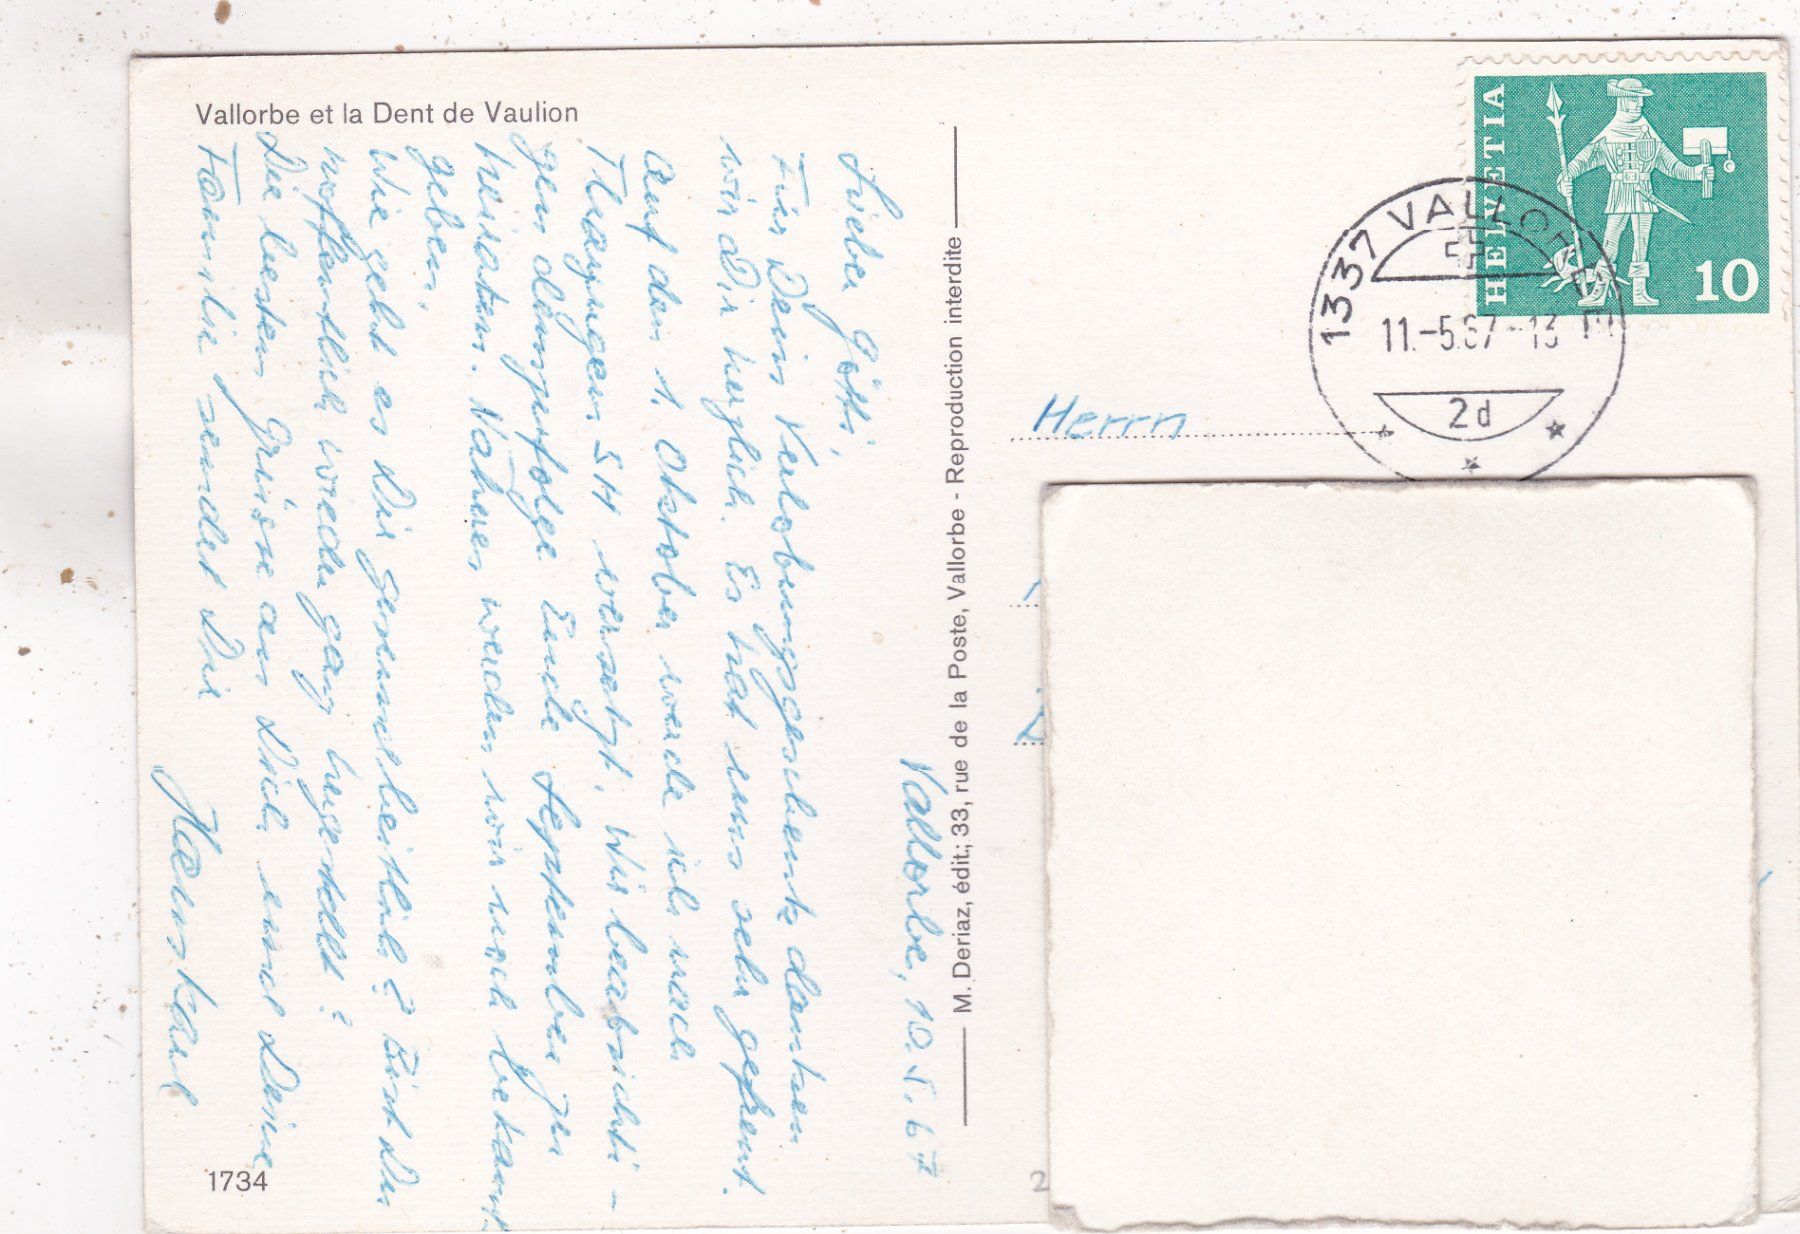 Vallorbe et la Dent de Vaulion
Vallorbe, 10.5.67
Lieber Götti,
Für Dein Verlobungsgeschenk danken
wir Dir herzlich. Es hat uns sehr gefreut.
Auf den 1. Oktober werde ich nach
Thayngen SH versetzt. Wir beabsichti-
gen demzufolge Ende September zu
heiraten. Näheres werden wir noch bekannt
geben.
Wie geht es Dir gesundheitlich? Bist Du
hoffentlich wieder ganz hergestellt?
Die besten Grüsse an Dich und Deine
Familie sendet Dir
Hans Karl
1734
M. Deriaz, édit.; 33, rue de la Poste, Vallorbe - Reproduction interdite
HELVETIA
10
1337 VALLORBE
11.-5.67-13
2d
Herrn
2